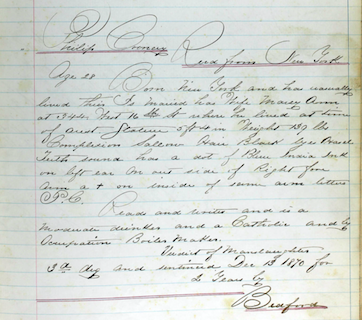 Philip Cronery Recd from New York
Age 28 Born New York and has usually
lived there Is Married has Wife Mary Ann
at 344 West 16th St where he lived at time
of arest Stature 5ft 4 in Weight 139 lbs
Complexion Sallow Hair Black Eyes Hazel
Teeth sound has a dot of Blue India Ink
on left ear On out side of Right fore
arm a + on inside of same arm letters
P.C.
Reads and writes and is a
Moderate drinker and a Catholic and by
Occupation Boiler Maker.
Verdict of Manslaughter
3d deg and sentenced Dec 13 1870 for
2 Years by
Bedford